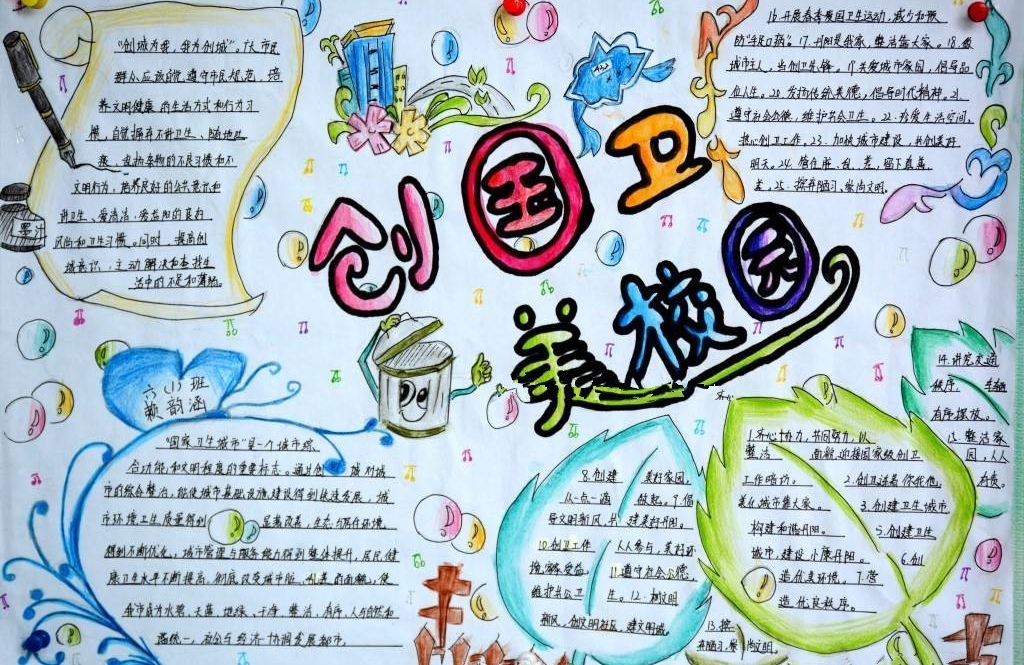 创国卫
美校园
"创城为我,我为创城",广大市民
群众应该自觉遵守市民规范,培
养文明健康的生活方式和行为习
惯,自觉摒弃不讲卫生、随地吐
痰、乱扔杂物的不良习惯和不
文明行为,培养良好的公共意识和
讲卫生、爱清洁、爱益阳的良好
风尚和卫生习惯。同时,提高创
城意识,主动解决和查找生
活中的不足和薄弱。
墨汁
16.开展春季爱国卫生运动,减少和预
防"手足口病"。17.丹阳是我家,整洁靠大家。18.做
城市主人,当创卫先锋。19.关爱城市家园,倡导品
位人生。20.发扬传统美德,倡导时代精神。21.
遵守社会公德,维护公共卫生。22.珍爱生活空间,
热心创卫工作。23.加快城市建设,共创美好
明天。24.管住脏、乱、差,留下真善
美。25.摒弃陋习,崇尚文明。
六(1)班
赖韵涵
"国家卫生城市"是一个城市综
合功能和文明程度的重要标志。通过创 城对城
市的综合整治,能使城市基础设施建设得到快速发展,城
市环境卫生质量得到 显著改善,生态与居住环境
得到不断优化,城市管理与服务能力得到整体提升,居民健
康卫生水平不断提高,彻底改变城市脏、乱、差的面貌,使
我市成为水碧、天蓝、地绿、干净、整洁、有序、人与自然和
谐统一、社会与经济协调发展都市。
8.创建 美好家园,
从一点一滴 做起。9.倡
导文明新风,共 建美好丹阳。
10.创卫工作 人人参与,美好环
境,家家受益。 11.遵守社会公德,
维护公共卫 生。12.树文明
新风,创文明社区,建文明城。
13.摒
弃陋习,崇尚文明。
1.齐心协力,共同努力,以
整洁 面貌,迎接国家级创卫
工作暗访。 2.创卫连着你我他,
美化城市靠大家。 3.创建卫生城市,
构建和谐丹阳。 5.创建卫生
城市,建设小康丹阳。 6.创
造优美环境, 7.营
造优良秩序。
14.讲究交通
秩序, 车辆
有序摆放。
15.整洁家
园,人人
有责。